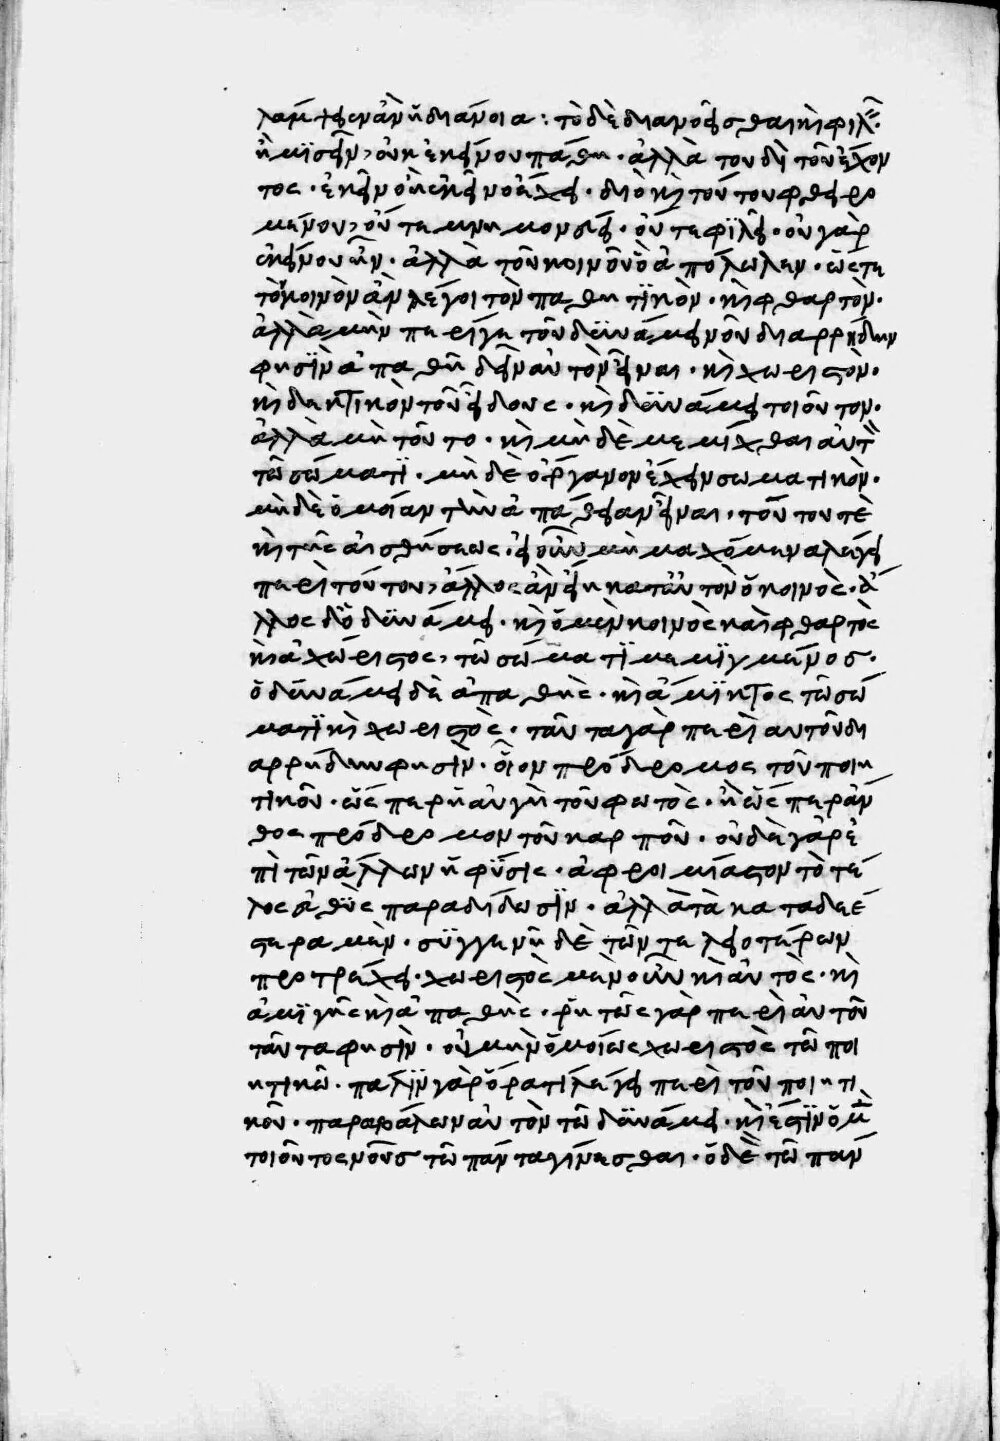 λάμψειεν ἂν ἡ διάνοια : τὸ δὲ διανοεῖσθαι κὶ φιλεῖν
ἢ μισεῖν, οὐκ ἐκείνου πάθη · ἀλλὰ τουδὶ τοῦ ἔχον
τος · ἐκεῖνο ᾗ ἐκεῖνο ἔχει · διὸ κὶ τούτου φθειρο
μένου, οὔτε μνημονεύει · οὔτε φιλεῖ · οὐ γὰρ
ἐκείνου ἦν · ἀλλὰ τοῦ κοινοῦ ὃ ἀπόλωλεν · ὥστε
τὸν κοινὸν ἂν λέγοι τὸν παθητικὸν · κὶ φθαρτὸν ·
ἀλλὰ μὴν περί γε τοῦ δυνάμει νοῦ διαρρήδην
φησὶν ἀπαθῆ δεῖν αὐτὸν εἶναι · κὶ χωριστὸν ·
κὶ δεκτικὸν τοῦ εἴδους · κὶ δυνάμει τοιοῦτον ·
ἀλλὰ μὴ τοῦτο · κὶ μηδὲ μεμίχθαι αὐτὸν
τῶ σώματι · μηδὲ ὄργανον ἔχειν σωματικὸν ·
μηδὲ ὁμοίαν τὴν ἀπάθειαν εἶναι · τούτου τὲ
κὶ τῆς αἰσθήσεως · εἰ οὖν μὴ μαχόμενα λέγει
περὶ τούτου, ἄλλος ἂν εἴη κατ' αὐτὸν ὁ κοινὸς · ἄ
λλος δ' ὁ δυνάμει · κὶ ὁ μὲν κοινὸς καὶ φθαρτὸς
κὶ ἀχώριστος, τῶ σώματι μεμιγμένος ·
ὁ δυνάμει δὲ ἀπαθὴς · κὶ ἄμικτος τῶ σώ
ματι κὶ χωριστὸς · ταῦτα γὰρ περὶ αὐτοῦ δι
αρρήδην φησὶν · οἷον πρόδρομος τοῦ ποιη
τικοῦ · ὥσπερ ἡ αὐγὴ τοῦ φωτὸς · ἢ ὥσπερ ἄν
θος πρόδρομον τοῦ καρποῦ · οὐδὲ γὰρ ἐ
πὶ τῶν ἄλλων ἡ φύσις · ἀφροιμίαστον τὸ τέ
λος εὐθὺς παραδίδωσιν · ἀλλὰ τὰ καταδεέ
στερα μὲν · συγγενῆ δὲ τῶν τελεοτέρων
προτρέχει · χωριστὸς μὲν οὖν κὶ αὐτὸς · κὶ
ἀμιγὴς κὶ ἀπαθὴς · ῥητῶς γὰρ περὶ αὐτοῦ
ταῦτα φησὶν · οὐ μὴν ὁμοίως χωριστὸς τῶ ποι
ητικῶ · πάλιν γὰρ ὅρα τί λέγει περὶ τοῦ ποιητι
κοῦ · παραβάλων αὐτὸν τῶ δυνάμει · κὶ ἔστιν ὁ μὲν
τοιοῦτος νοῦς τῶ πάντα γίνεσθαι · ὁ δὲ τῶ πάν